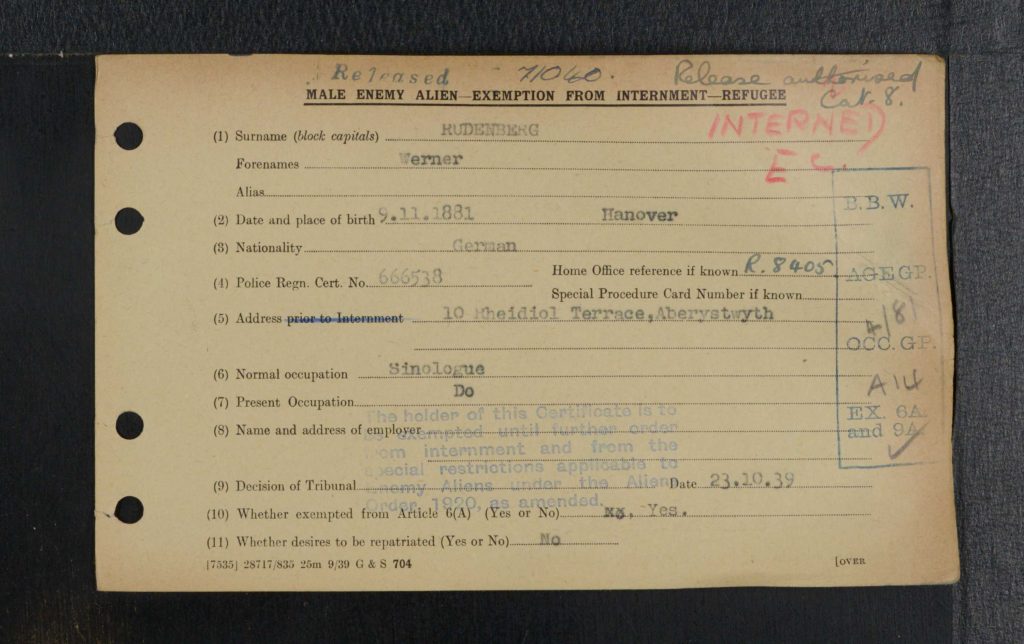 Released 71040. Release authorised
Cat. 8.
MALE ENEMY ALIEN—EXEMPTION FROM INTERNMENT—REFUGEE
INTERNED
E C.
(1) Surname (block capitals) RUDENBERG
Forenames Werner
Alias
B.B.W.
(2) Date and place of birth 9.11.1881 Hanover
(3) Nationality German
(4) Police Regn. Cert. No. 666538 Home Office reference if known R. 8405
AGE GP.
Special Procedure Card Number if known
4/81
(5) Address prior to Internment 10 Rheidiol Terrace, Aberystwyth
OCC. GP.
(6) Normal occupation Sinologue
A14
(7) Present Occupation Do
EX. 6A
and 9A
The holder of this Certificate is to
(8) Name and address of employer
be exempted until further order
from internment and from the
special restrictions applicable to
(9) Decision of Tribunal Date 23.10.39
Enemy Aliens under the Aliens
Order, 1920, as amended.
(10) Whether exempted from Article 6(A) (Yes or No) xx, Yes.
(11) Whether desires to be repatriated (Yes or No) No
[7535] 28717/835 25m 9/39 G & S 704 [OVER